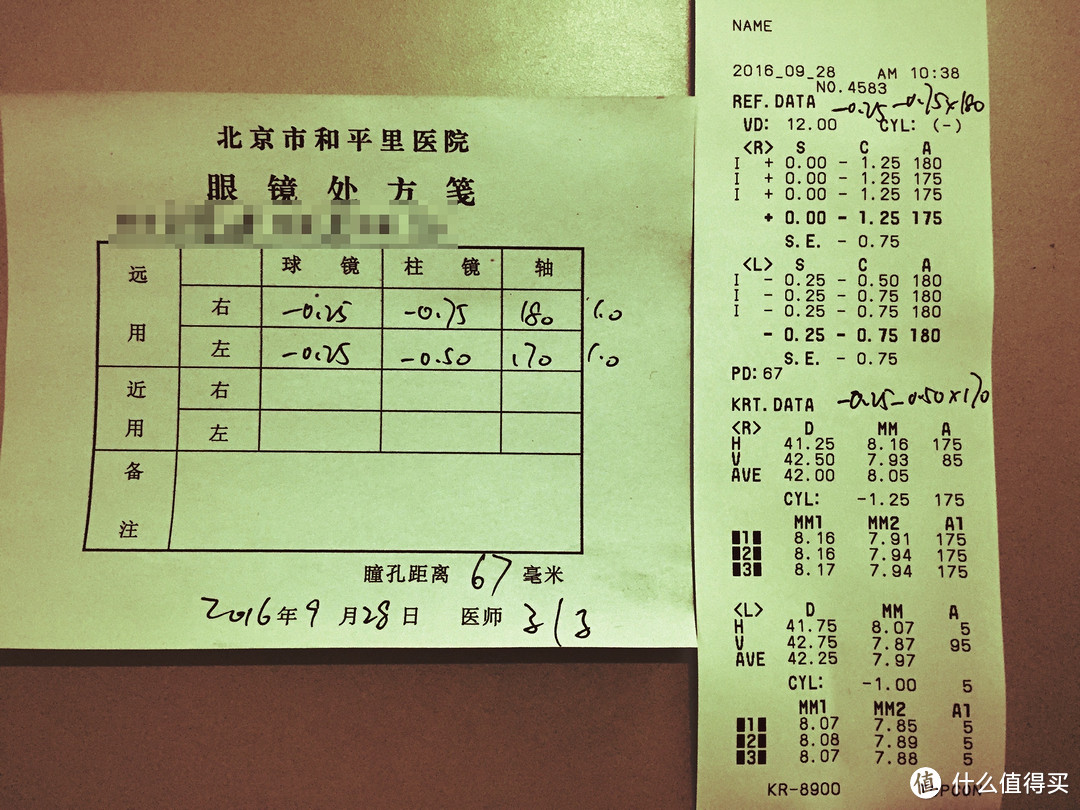 北京市和平里医院
眼镜处方笺
远用 球镜 柱镜 轴
右 -0.25 -0.75 180 1.0
左 -0.25 -0.50 170 1.0
近用 右
左
备注
瞳孔距离 67 毫米
2016年9月28日 医师
NAME
2016_09_28 AM 10:38
NO.4583
REF.DATA -0.25 -0.75×180
VD: 12.00 CYL: (-)
<R> S C A
I + 0.00 - 1.25 180
I + 0.00 - 1.25 175
I + 0.00 - 1.25 175
+ 0.00 - 1.25 175
S.E. - 0.75
<L> S C A
I - 0.25 - 0.50 180
I - 0.25 - 0.75 180
I - 0.25 - 0.75 180
- 0.25 - 0.75 180
S.E. - 0.75
PD: 67
KRT.DATA -0.25 -0.50×170
<R> D MM A
H 41.25 8.16 175
V 42.50 7.93 85
AVE 42.00 8.05
CYL: -1.25 175
MM1 MM2 A1
1 8.16 7.91 175
2 8.16 7.94 175
3 8.17 7.94 175
<L> D MM A
H 41.75 8.07 5
V 42.75 7.87 95
AVE 42.25 7.97
CYL: -1.00 5
MM1 MM2 A1
1 8.07 7.85 5
2 8.08 7.89 5
3 8.07 7.88 5
KR-8900
值 什么值得买